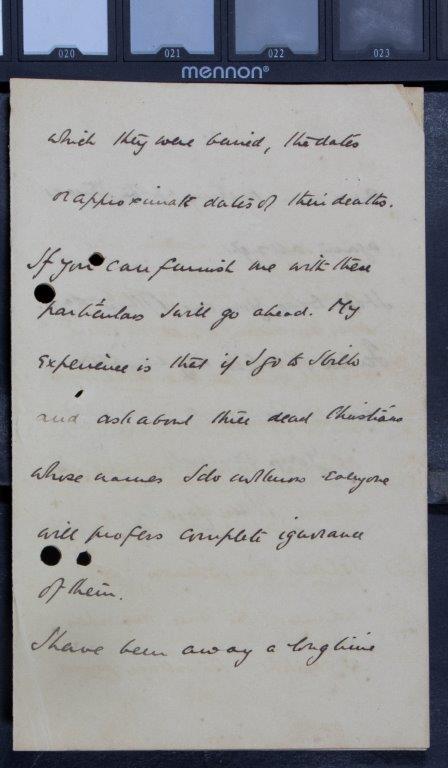 020 021 022 023
mennon®
which they were buried, the dates
or approximate dates of their deaths.
If you can furnish me with these
particulars I will go ahead. My
experience is that if I go to
and ask about three dead Christians
whose names I do not know everyone
will profess complete ignorance
of them.
I have been away a long time